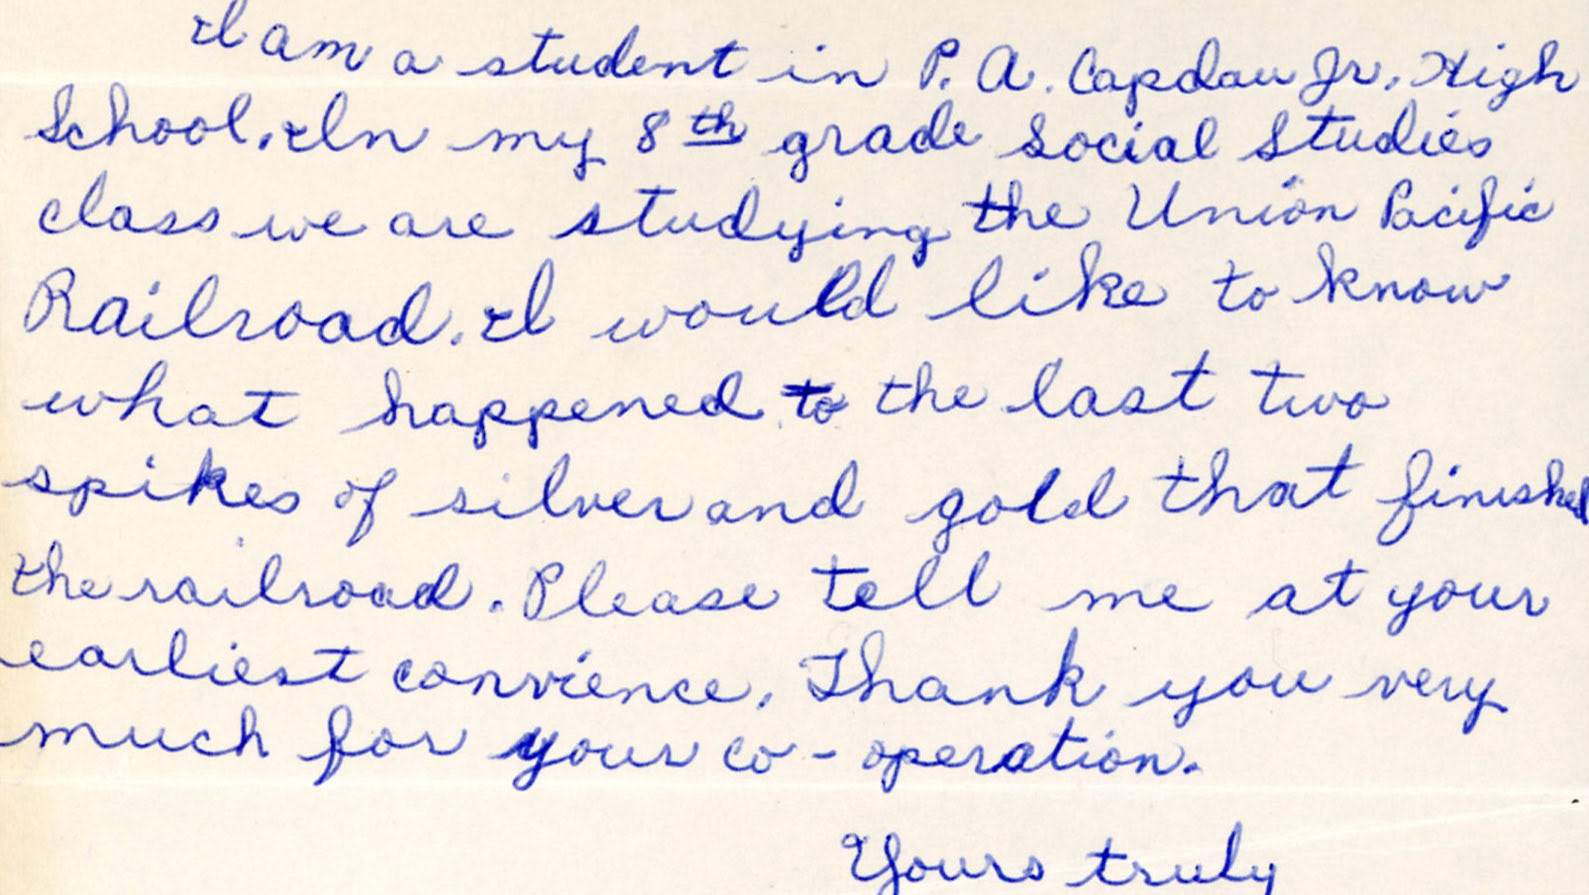 I am a student in P. A. Capdau Jr. High
School. In my 8th grade Social Studies
class we are studying the Union Pacific
Railroad. I would like to know
what happened to the last two
spikes of silver and gold that finished
the railroad. Please tell me at your
earliest convience. Thank you very
much for your co-operation.
Yours truly